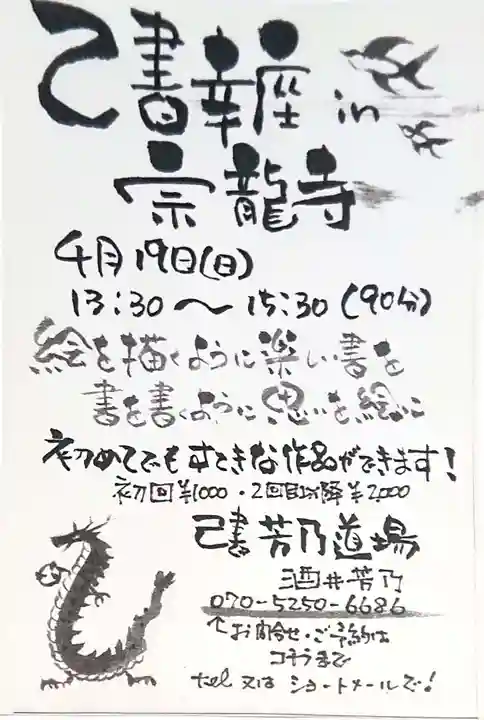 己書幸座 in
宗龍寺
4月19日(日)
13:30〜15:30(90分)
絵を描くように楽しい書を
書を書くように思いを絵に
初めてでもすてきな作品ができます!
初回¥1000・2回目以降¥2000
己書芳乃道場
酒井芳乃
070-5250-6686
↑お問合せ・ご予約は
コチラまで
tel 又は ショートメールで!